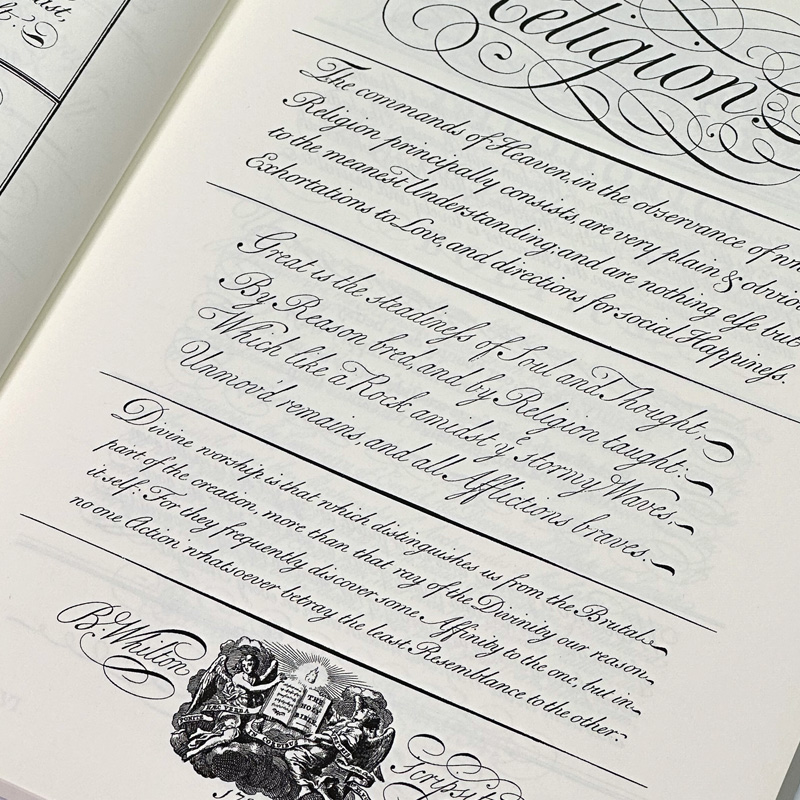 Religion
The commands of Heaven, in the observance of wh
Religion principally consists, are very plain & obvio
to the meanest Understanding; and are nothing else but
Exhortations to Love, and directions for social Happiness.
Great is the steadiness of Soul and Thought,
By Reason bred, and by Religion taught:
Which like a Rock amidst yᵉ stormy Waves,
Unmov'd remains and all Afflictions braves.
Divine worship is that which distinguishes us from the Brutal
part of the creation, more than that ray of the Divinity our reason
itself: For they frequently discover some Affinity to the one, but in
no one Action whatsoever betray the least Resemblance to the other.
B. Whilton
THE
HOLY
BIBLE
Scripsit